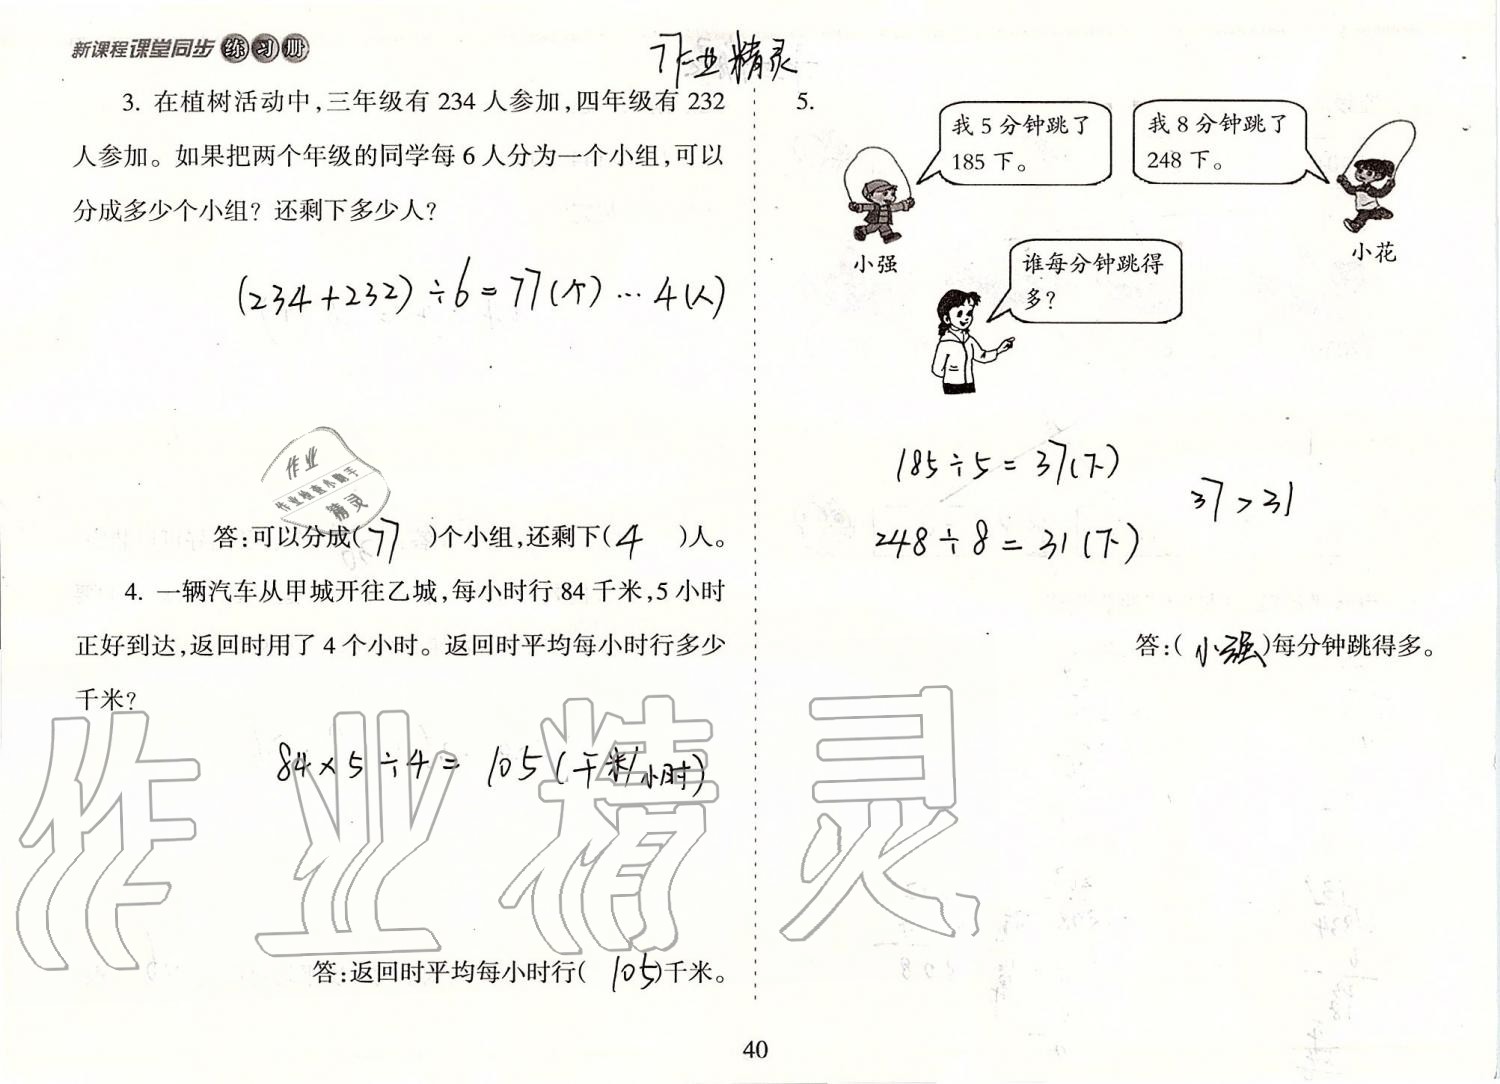 新课程课堂同步练习册
作业精灵
3. 在植树活动中,三年级有 234 人参加,四年级有 232
人参加。如果把两个年级的同学每 6 人分为一个小组,可以
分成多少个小组? 还剩下多少人?
(234+232)÷6=77(个)…4(人)
作业
作业检查小助手
精灵
答:可以分成( 77 )个小组,还剩下( 4 )人。
4. 一辆汽车从甲城开往乙城,每小时行 84 千米,5 小时
正好到达,返回时用了 4 个小时。返回时平均每小时行多少
千米?
84×5÷4= 105(千米/小时)
答:返回时平均每小时行( 105)千米。
5.
我 5 分钟跳了
185 下。
我 8 分钟跳了
248 下。
小强
小花
谁每分钟跳得
多?
185÷5=37(下)
37>31
248÷8=31(下)
答:( 小强)每分钟跳得多。
作业精灵
40